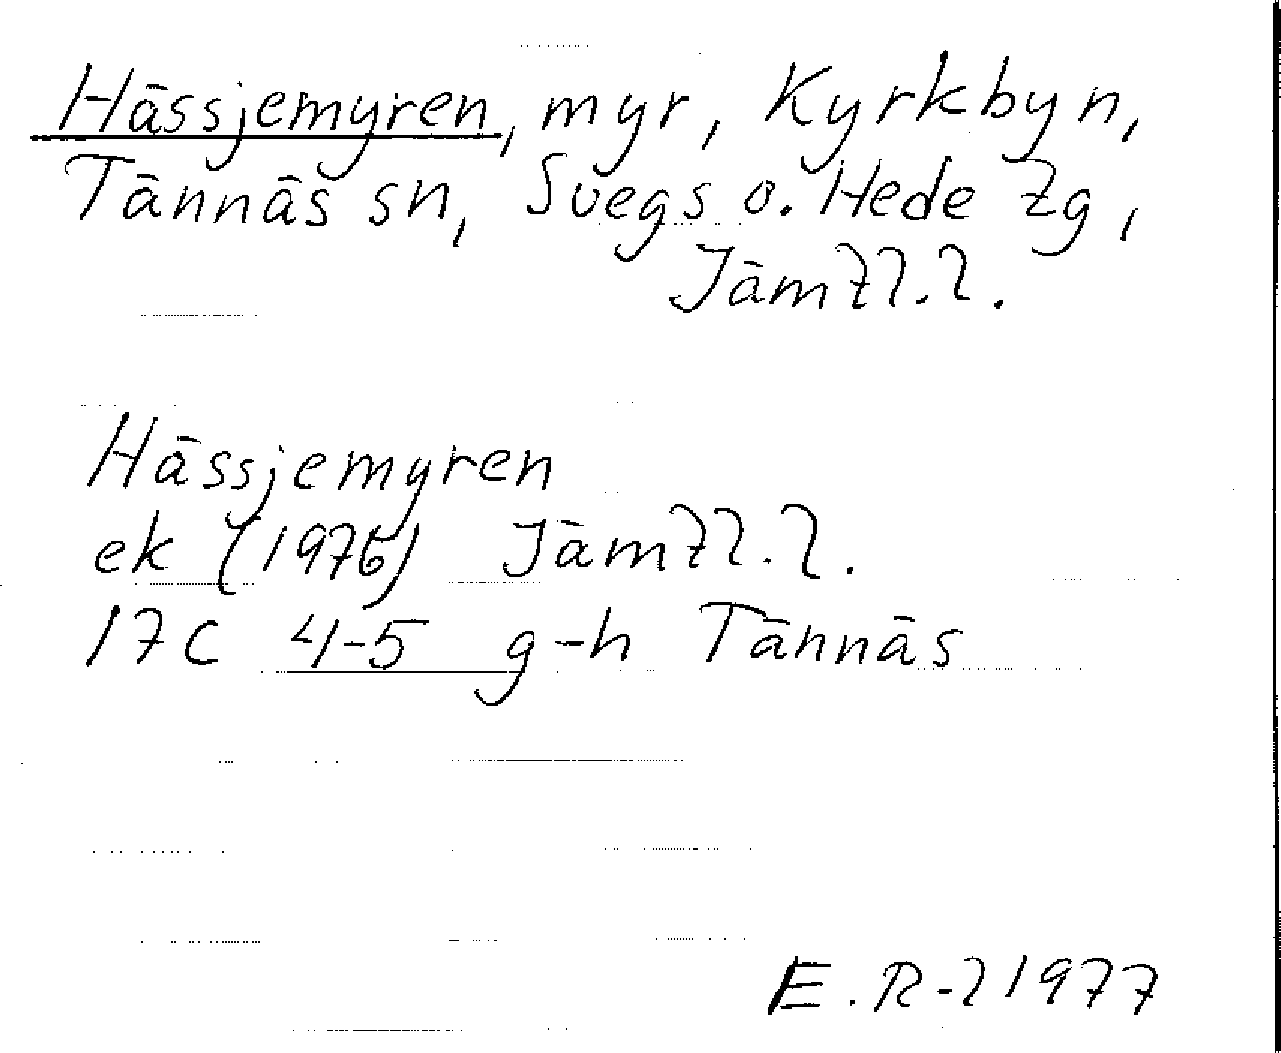 Hässjemyren, myr, Kyrkbyn,
Tännäs sn, Svegs o. Hede tg,
Jämtl. l.
Hässjemyren
ek (1976) Jämtl. l.
17C 4-5 g-h Tännäs
E. R-l 1977